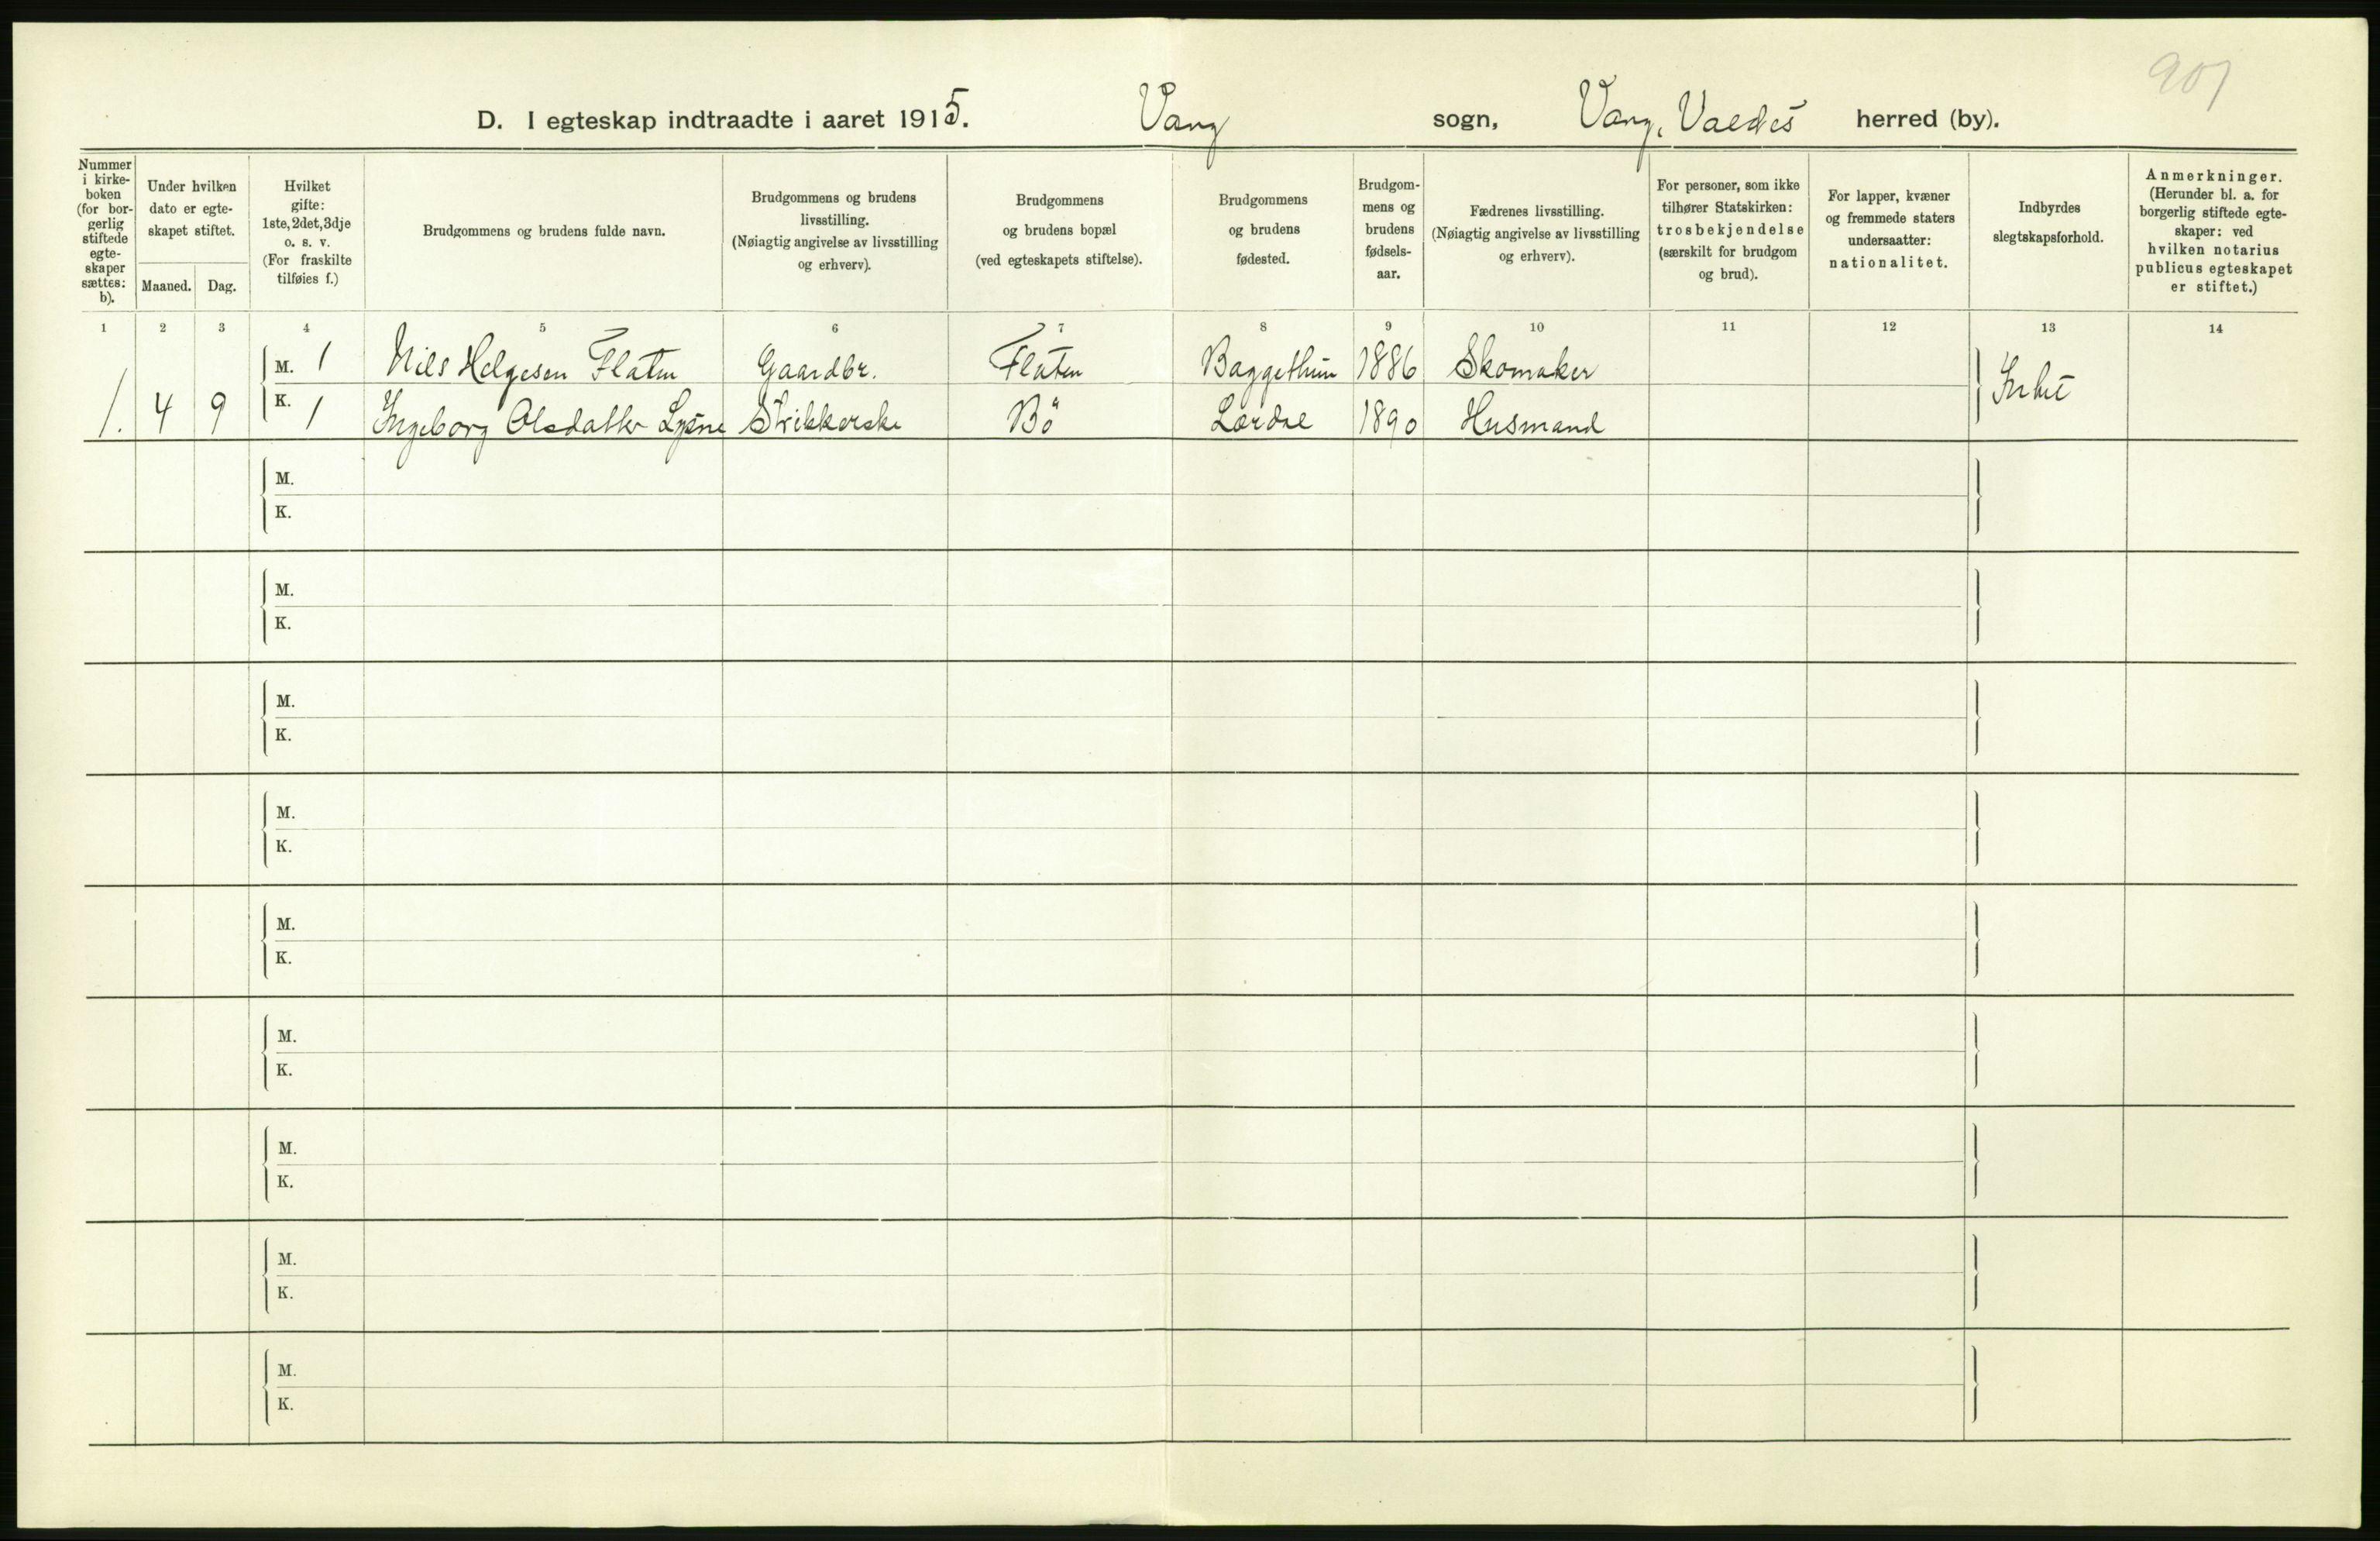 901
D. I egteskap indtraadte i aaret 1915. Vang sogn, Vang, Valdés herred (by).
Nummer i kirke-boken (for bor-gerlig stiftede egte-skaper sættes: b).
Under hvilken dato er egte-skapet stiftet.
Maaned. Dag.
Hvilket gifte: 1ste, 2det, 3dje o. s. v. (For fraskilte tilføies f.)
Brudgommens og brudens fulde navn.
Brudgommens og brudens livsstilling. (Nøiagtig angivelse av livsstilling og erhverv).
Brudgommens og brudens bopæl (ved egteskapets stiftelse).
Brudgommens og brudens fødested.
Brudgom-mens og brudens fødsels-aar.
Fædrenes livsstilling. (Nøiagtig angivelse av livsstilling og erhverv).
For personer, som ikke tilhører Statskirken: trosbekjendelse (særskilt for brudgom og brud).
For lapper, kvæner og fremmede staters undersaatter: nationalitet.
Indbyrdes slegtskapsforhold.
Anmerkninger. (Herunder bl. a. for borgerlig stiftede egte-skaper: ved hvilken notarius publicus egteskapet er stiftet.)
1 2 3 4 5 6 7 8 9 10 11 12 13 14
M. 1 Nils Helgesen Flaten Gaardbr. Flaten Baggethun 1886 Skomaker
1. 4 9 K. 1 Ingeborg Olsdatter Lysne Strikkerske Bö Lærdal 1890 Husmand Intet
M.
K.
M.
K.
M.
K.
M.
K.
M.
K.
M.
K.
M.
K.
M.
K.
M.
K.